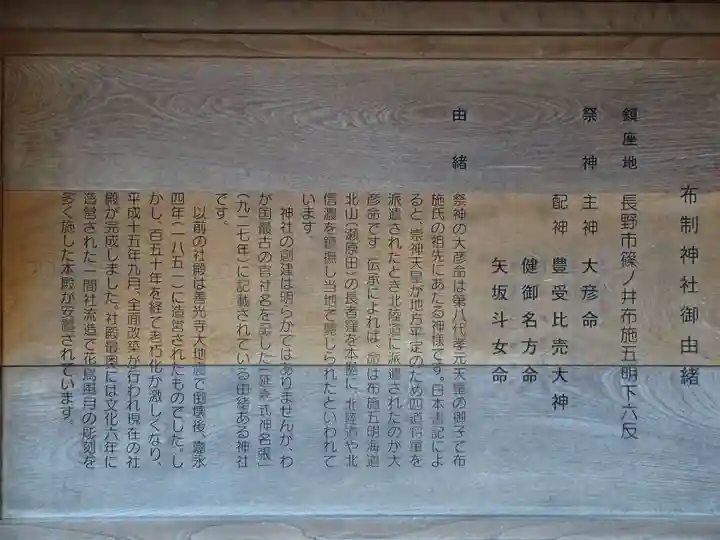 布制神社御由緒
鎮座地　長野市篠ノ井布施五明下六反
祭神　主神　大彦命
配神　豊受比売大神
健御名方命
矢坂斗女命
由緒
祭神の大彦命は第八代孝元天皇の御子で布
施氏の祖先にあたる神様です。日本書記によ
ると、崇神天皇が地方平定のため四道将軍を
派遣されたとき北陸道に派遣されたのが大
彦命です。伝承によれば、命は布施五明海道
北山(瀬原田)の長者窪を本拠に、北陸道や北
信濃を鎮撫し当地で薨じられたといわれて
います。
神社の創建は明らかではありませんが、わ
が国最古の官社名を記した「延喜式神名張」
(九二七年)に記載されている由緒ある神社
です。
以前の社殿は善光寺大地震で倒壊後、嘉永
四年(一八五一)に造営されたものでした。し
かし、百五十年を経て老朽化が激しくなり、
平成十五年九月、全面改築が行われ現在の社
殿が完成しました。社殿最奥には文化六年に
造営された一間社流造で花鳥風月の彫刻を
多く施した本殿が安置されています。